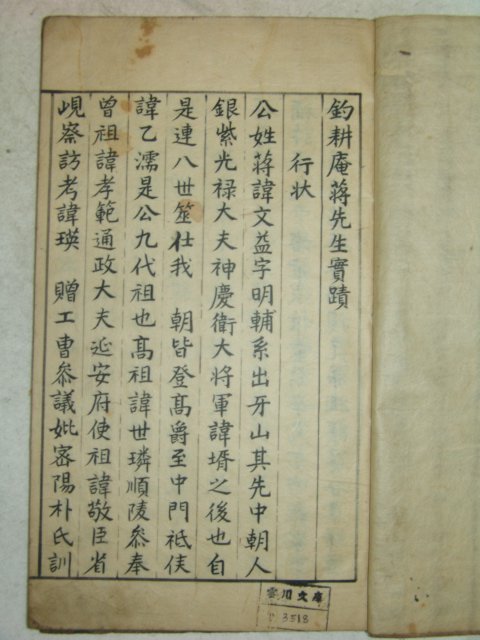 釣耕庵蔣先生實蹟
行状
公姓蔣諱文益字明輔系出牙山其先中朝人
銀紫光禄大夫神慶衛大将軍諱壻之後也自
是連八世筮仕我 朝皆登髙爵至中門祗侯
諱乙濡是公九代祖也髙祖諱世璘順陵叅奉
曾祖諱孝範通政大夫延安府使祖諱敬臣省
峴察訪考諱瑛 贈工曺叅議妣密陽朴氏訓
文庫
3518